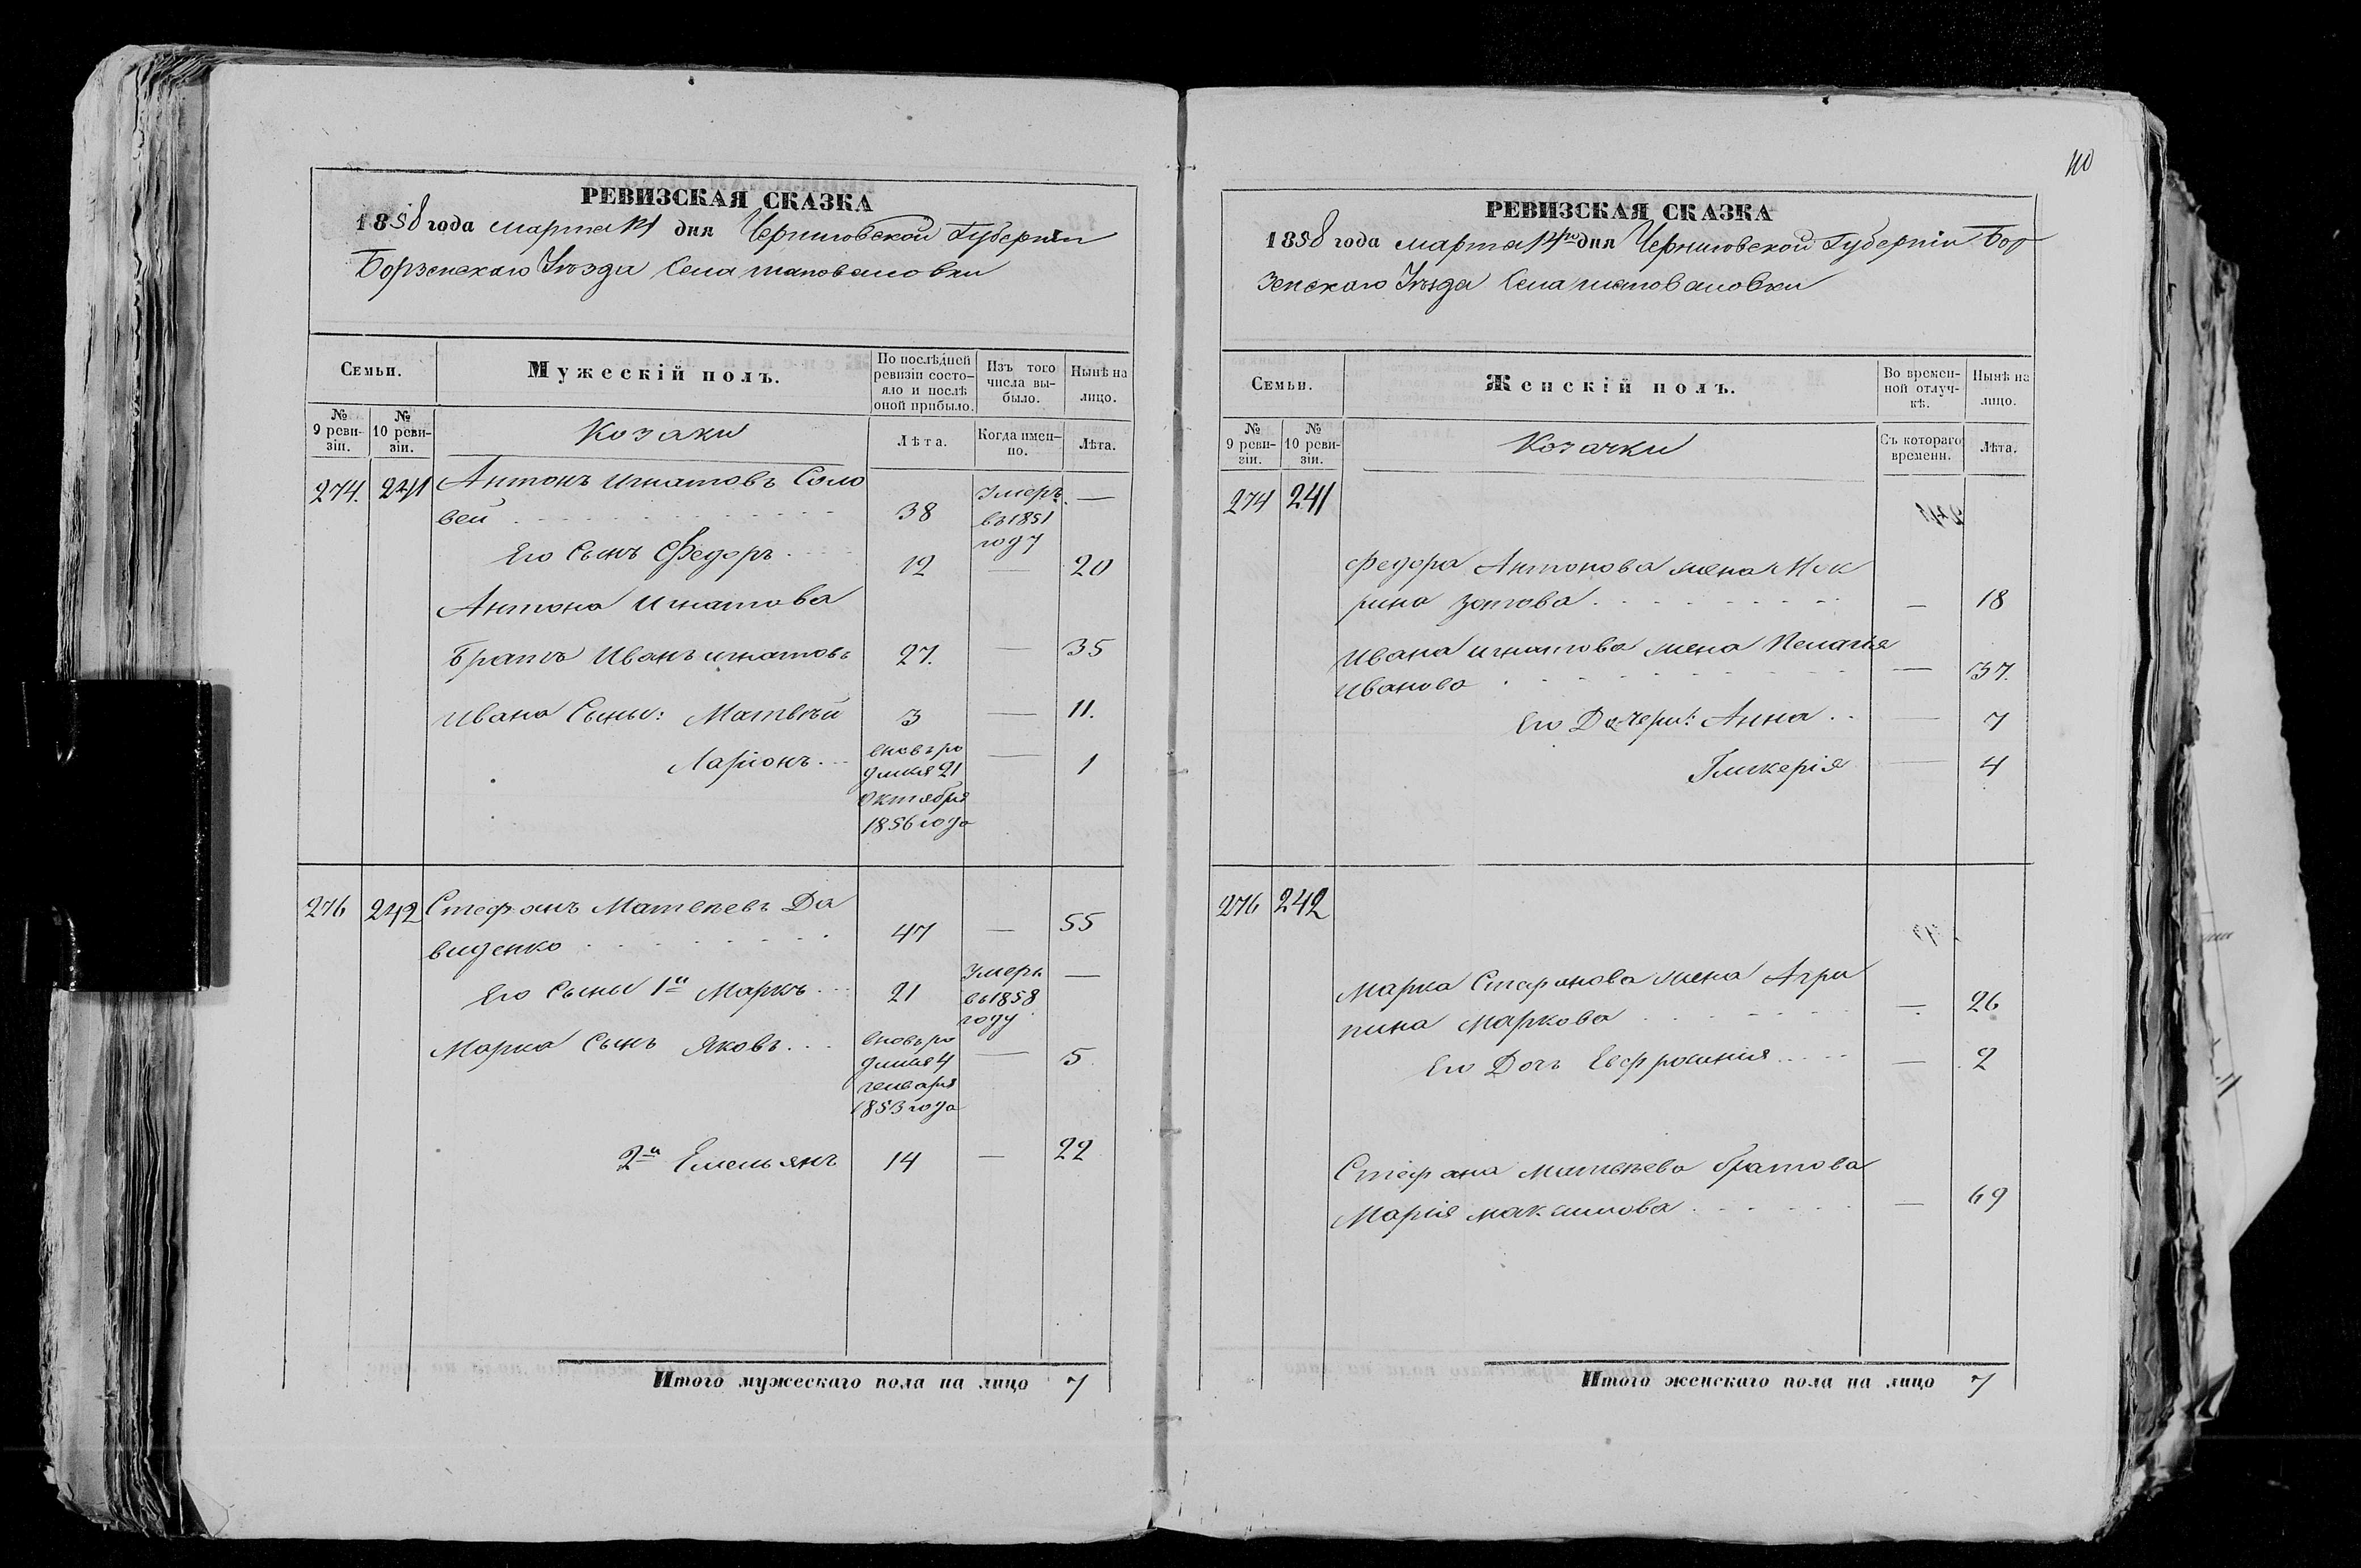 РЕВИЗСКАЯ СКАЗКА
1858 года марта 14 дня Черниговской Губерніи
Борзенскаго Уѣзда Села Шаповаловки
Семьи.
Мужескій полъ.
По послѣдней ревизіи состо-яло и послѣ оной прибыло.
Изъ того числа вы-было.
Нынѣ на лицо.
№ 9 реви-зіи.
№ 10 реви-зіи.
Козаки
Лѣта.
Когда имен-но.
Лѣта.
274. 241 Антонъ Игнатовъ Соло
вей 38 Умеръ въ 1851 году —
Его Сынъ Федоръ 12 — 20
Антона Игнатова
Братъ Иванъ Игнатовъ 27. — 35
Ивана Сыны: Матвѣй 3 — 11.
Ларіонъ вновь ро
дился 21
Октября
1856 года — 1
276 242 Стефанъ Матвѣевъ Да
виденко 47 — 55
Его Сыны 1й Маркъ 21 Умеръ въ 1858 году —
Марка Сынъ Яковъ вновь ро
дился 4
генваря
1853 года — 5
2й Емельянъ 14 — 22
Итого мужескаго пола на лицо 7
110
РЕВИЗСКАЯ СКАЗКА
1858 года марта 14го дня Черниговской Губерніи Бор
зенскаго Уѣзда Села Шаповаловки
Семьи.
Женскій полъ.
Во времен-ной отлуч-кѣ.
Нынѣ на лицо.
№ 9 реви-зіи.
№ 10 реви-зіи.
Козачки
Съ котораго времени.
Лѣта.
274 241
Федора Антонова жена Мок
рина Зотова — 18
Ивана Игнатова жена Пелагія
Иванова — 37.
Его Дочери: Анна — 7
Гликерія — 4
276 242
Марка Стефанова жена Агри
пина Маркова — 26
Его Дочь Евфросинія — 2
Стефана Матвѣева братова
Марія Максимова — 69
Итого женскаго пола на лицо 7